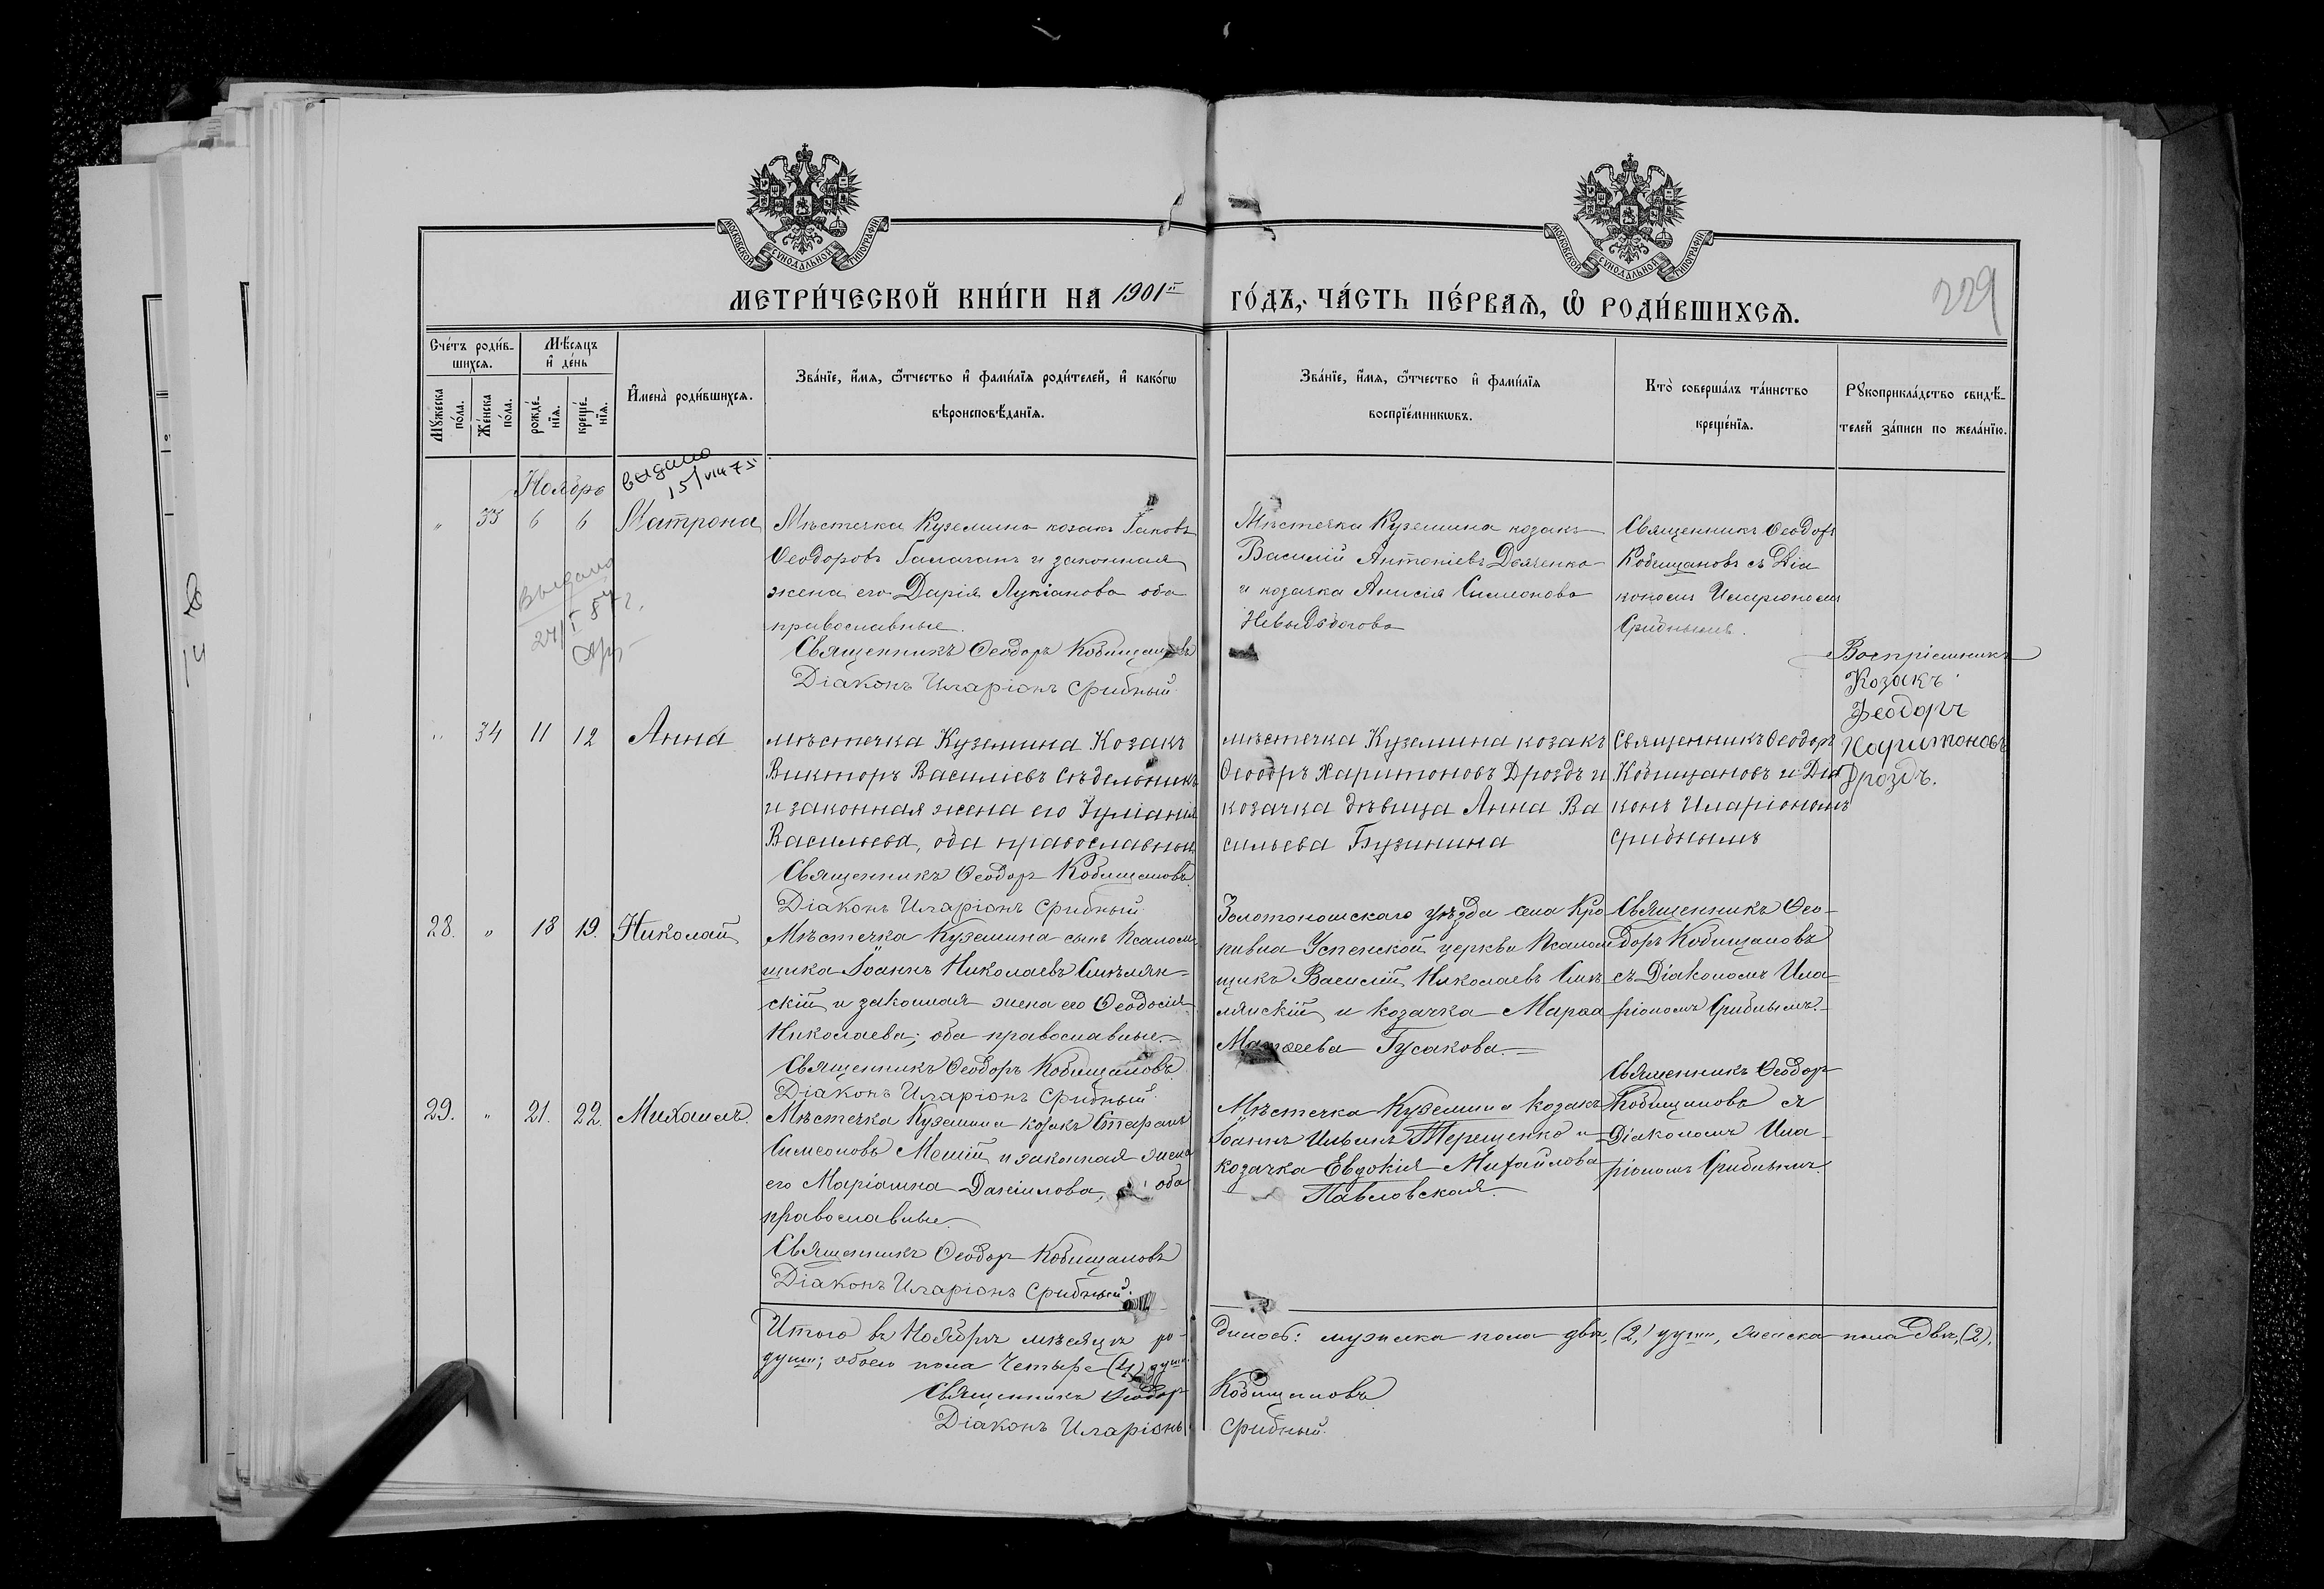 МОСКОВСКОЙ СѴНОДАЛЬНОЙ ТИПОГРАФІИ
МОСКОВСКОЙ СѴНОДАЛЬНОЙ ТИПОГРАФІИ
МЕТРИ́ЧЕСКОЙ КНИ́ГИ НА 1901й ГО́ДЪ, ЧА́СТЬ ПЕ́РВАѦ, Ѡ҆ РОДИ́ВШИХСѦ.
229
Сче́тъ роди́в-
шихсѧ.
Мꙋжеска
по́ла.
Же́нска
по́ла.
Мѣ́сѧцъ
и҆ де́нь
рожде́-
нїѧ.
креще́-
нїѧ.
И҆мена̀ роди́вшихсѧ.
Зва́нїе, и҆́мѧ, ѻ҆́тчество и҆ фами́лїѧ роди́телей, и҆ како́гѡ
вѣроисповѣ́данїѧ.
Зва́нїе, и҆́мѧ, ѻ҆́тчество и҆ фами́лїѧ
воспрїе́мникѡвъ.
Кто̀ соверша́лъ та́инство
креще́нїѧ.
Рꙋкоприкла́дство свидѣ́-
телей за́писи по жела́нїю.
Ноябрь
выдано
15/VIII 75
" 33 6 6 Матрона
Выдано
27/I
Мѣстечка Куземина козакъ Іаковъ
Ѳеодоровъ Галаганъ и законная
жена его Дарія Лукіанова оба
православные.
Священникъ Ѳеодоръ Кобищановъ
Діаконъ Иларіонъ Срибный.
Мѣстечка Куземина козакъ
Василій Антоніевъ Дьяченко
и козачка Анисія Симеонова
Священникъ Ѳеодоръ
Кобищановъ съ Діа
кономъ Иларіономъ
Срибнымъ.
" 34 11 12 Анна
мѣстечка Куземина Козакъ
Викторъ Василіевъ Сѣдельникъ
и законная жена его Іуліанія
Васильева, оба православные
Священникъ Ѳеодоръ Кобищановъ
Діаконъ Иларіонъ Срибный
мѣстечка Куземина козакъ
Ѳеодоръ Харитоновъ Дроздъ и
козачка дѣвица Анна Ва
сильева Бузинина
Священникъ Ѳеодоръ
Кобищановъ и Діа
конъ Иларіономъ
Срибнымъ
Воспріемникъ
Козакъ
Ѳеодоръ
Харитоновъ
Дроздъ.
28. " 18 19. Николай
Мѣстечка Куземина сынъ Псалом
щика Іоаннъ Николаевъ Смѣлян-
скій и законная жена его Ѳеодосія
Николаева; оба православные.
Священникъ Ѳеодоръ Кобищановъ
Діаконъ Иларіонъ Срибный.
Золотоношскаго уѣзда села Кро
пивна Успенской церкви Псалом
щикъ Василій Николаевъ Смѣ
лянскій и козачка Марѳа
Матѳеева Гусакова.
Священникъ Ѳео-
доръ Кобищановъ
съ Діакономъ Ила-
ріономъ Срибнымъ.
29. " 21. 22. Михаилъ.
Мѣстечка Куземина козакъ
Симеоновъ и законная жена
его Маріамна Даніилова, оба
православные.
Священникъ Ѳеодоръ Кобищановъ
Діаконъ Иларіонъ Срибный.
Мѣстечка Куземина козакъ
Іоаннъ Ильинъ Терещенко и
козачка Евдокія Михайлова
Павловская.
Священникъ Ѳеодоръ
Кобищановъ съ
Діакономъ Ила-
ріономъ Срибнымъ.
Итого въ Ноябрѣ мѣсяцѣ ро-дилось: мужеска пола двѣ, (2,) души, женска пола двѣ, (2),
души; обоего пола четыре (4) души.
Священникъ Ѳеодоръ Кобищановъ
Діаконъ Иларіонъ Срибный.